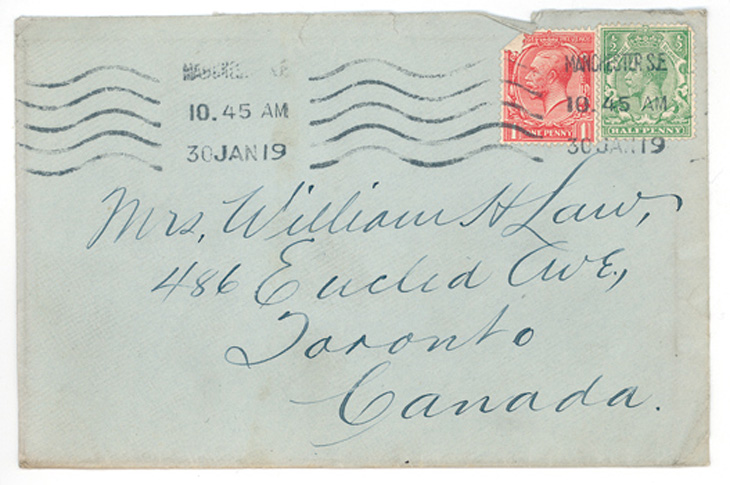 MANCHESTER S.E
10. 45 AM
30 JAN 19
MANCHESTER S.E
10. 45 AM
30 JAN 19
ONE PENNY
1
½ ½
HALFPENNY
Mrs. William H Law,
486 Euclid Ave.,
Toronto
Canada.